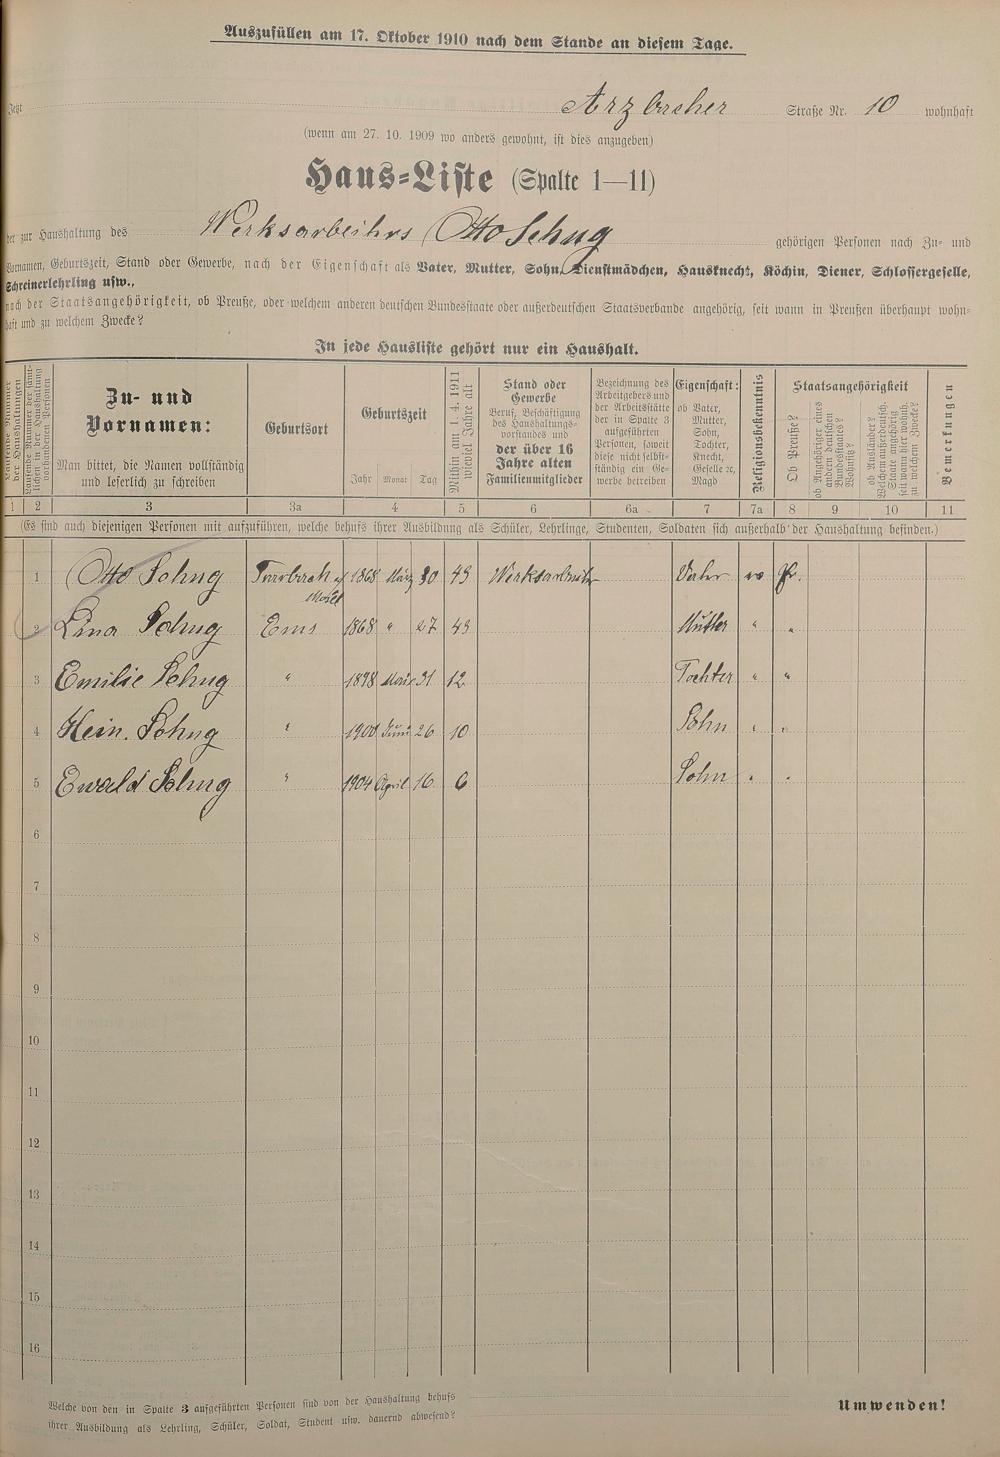 Auszufüllen am 17. Oktober 1910 nach dem Stande an diesem Tage.
Jetzt Arzbacher Straße Nr. 10 wohnhaft
(wenn am 27. 10. 1909 wo anders gewohnt, ist dies anzugeben)
Haus-Liste (Spalte 1—11)
der zur Haushaltung des Werksarbeiters Otto Schug gehörigen Personen nach Zu- und
Vornamen, Geburtszeit, Stand oder Gewerbe, nach der Eigenschaft als Vater, Mutter, Sohn, Dienstmädchen, Hausknecht, Köchin, Diener, Schlossergeselle,
Schreinerlehrling usw.,
nach der Staatsangehörigkeit, ob Preuße, oder welchem anderen deutschen Bundesstaate oder außerdeutschen Staatsverbande angehörig, seit wann in Preußen überhaupt wohn-
haft und zu welchem Zwecke?
In jede Hausliste gehört nur ein Haushalt.
Laufende Nummer der Haushaltungen
Laufende Nummer der sämt-
lichen in der Haushaltung
vorhandenen Personen
Zu- und
Vornamen:
Man bittet, die Namen vollständig
und leserlich zu schreiben
Geburtsort
Geburtszeit
Jahr Monat Tag
Mithin am 1. 4. 1911
wieviel Jahre alt
Stand oder
Gewerbe
Beruf, Beschäftigung
des Haushaltungs-
vorstandes und
der über 16
Jahre alten
Familienmitglieder
Bezeichnung des
Arbeitgebers und
der Arbeitsstätte
der in Spalte 3
aufgeführten
Personen, soweit
diese nicht selbst-
ständig ein Ge-
werbe betreiben
Eigenschaft:
ob Vater,
Mutter,
Sohn,
Tochter,
Knecht,
Geselle ec,
Magd
Religionsbekenntnis
Staatsangehörigkeit
Ob Preuße?
ob Angehöriger eines
andern deutschen
Bundesstaates?
Wohnsitz?
ob Ausländer?
Welchem außerdeutsch.
Staate angehörig
seit wann hier wohnh.
zu welchem Zwecke?
Bemerkungen
1 2 3 3a 4 5 6 6a 7 7a 8 9 10 11
(Es sind auch diejenigen Personen mit aufzuführen, welche behufs ihrer Ausbildung als Schüler, Lehrlinge, Studenten, Soldaten sich außerhalb der Haushaltung befinden.)
1 Otto Schug Trarbach a/ Mosel 1868 März 30 43 Werksarbeiter Vater ev Pr.
2 Lina Schug Ems 1868 " 27 43 Mutter " "
3 Emilie Schug " 1898 31 12 Tochter " "
4 Hein. Schug " 1900 Juni 26 10 Sohn " "
5 Ewald Schug " 1904 April 16 6 Sohn " "
6
7
8
9
10
11
12
13
14
15
16
Welche von den in Spalte 3 aufgeführten Personen sind von der Haushaltung behufs
ihrer Ausbildung als Lehrling, Schüler, Soldat, Student usw. dauernd abwesend?
Umwenden!